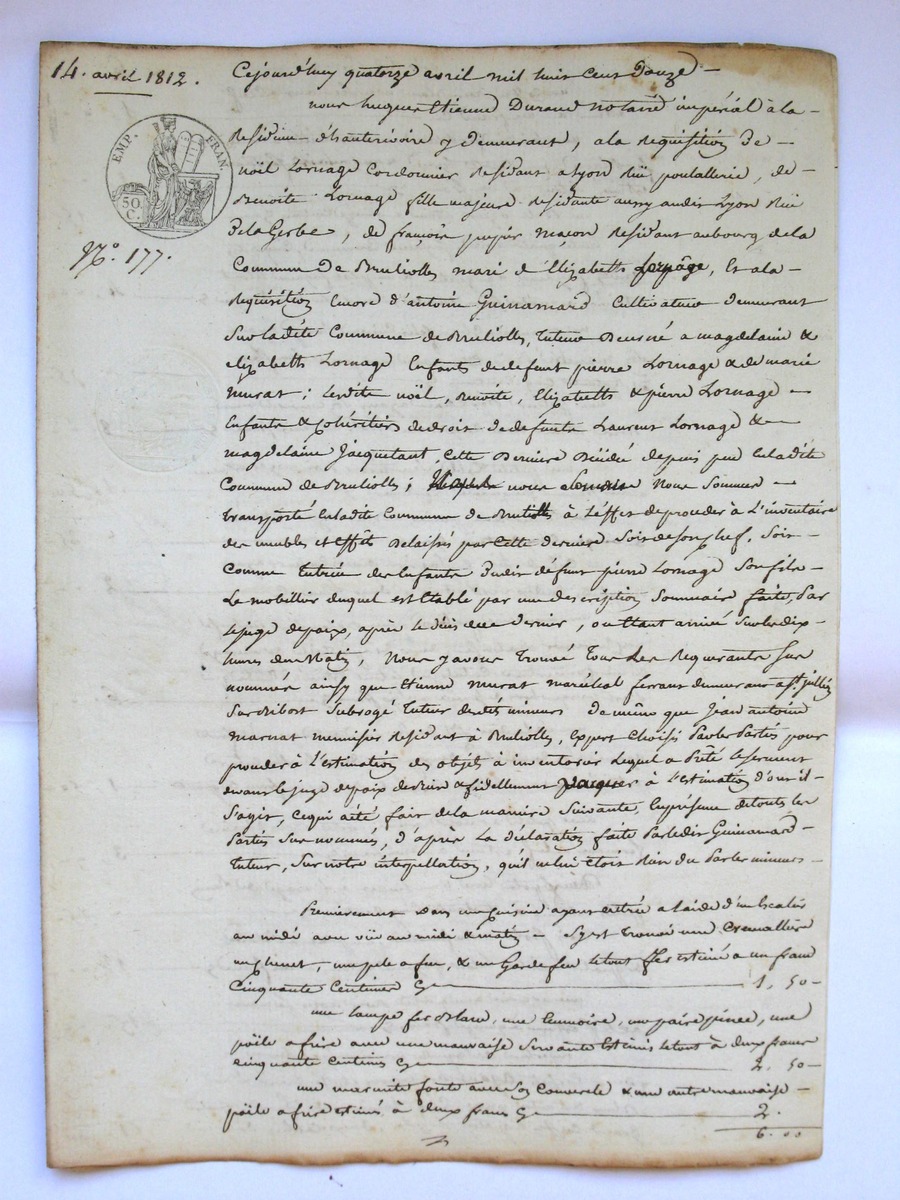 14. avril 1812.
EMP. FRAN
50 C.
N.º 177.
Cejourd'huy quatorze avril mil huit cent douze
nous hugues Etienne Durand notaire impérial à la
Residence d'hauterivoire y demeurant, a la Requisition De
noël Lornage Cordonnier Résidant a Lyon Rüe poulallerie, de
Benoite Lornage fille majeure résidante aussy audit Lyon Rüe
De la Gerbe, de françois maçon Résidant au bourg de la
Commune De Brulliolles mari d'Elizabeth Lornage, Et a la
Requisition Encore d'antoine Guinamard Cultivateur demeurant
Sur ladite Commune de Brulliolles, tuteur Decerné a magdelaine &
elizabeth Lornage Enfants de defunt pierre Lornage & de marie
murat; Lesdits noël, Benoite, Elizabeth & pierre Lornage
Enfants & Cohéritiers de droit de defunts Laurent Lornage &
magdelaine Jacquetant, Cette Derniere Décédée depuis peu En ladite
Commune de Brulliolles; nous Nous Sommes
transporté En ladite Commune de Brulliolles à L'effet de proceder à L'inventaire
des meubles et Effets Delaissés par Cette derniere Soit de Son chef, Soit
Comme tutrice des Enfants Dudit défunt pierre Lornage Son fils
Le mobillier duquel est Etabli par une description Sommaire faite, Par
le juge de paix, après le décès de ce dernier, où Etant arrivé Sur les dix
heures du Matin, Nous y avons Trouvé Tous Les Requerants Sus
nommés ainsy que Etienne murat maréchal ferrant demeurant a St. jullien
Sur Bibost Subrogé tuteur desdits mineurs De même que Jean antoine
marnat menuisier Résidant à Brulliolles, Expert Choisi Par les Parties pour
proceder à L'estimation des objets à inventorier Lequel a Prêté le serment
devant le juge de paix de bien & fidellement à L'estimation dont il
S'agit, ce qui a été fait de la maniere Suivante, En présence de touts les
Parties Sus nommés, d'après La déclaration faite Par ledit Guinamard
tuteur, Sur notre interpellation, qu'il ne lui étoit Rien du Par les mineurs
Premierement dans une Cuisine ayant entrée a l'aide d'un Escalier
au midi avec vüe au midi & matin Sy est Trouvé une Cremallière
un chenet, une pele a feu, & un Garde feu le tout fer estimé a un franc
Cinquante Centimes Cy 1, 50
une lampe fer blanc, une une paire pince, une
pöële a frire avec une mauvaise Servante Estimés le tout à deux francs
cinquante centimes Cy 2, 50
une marmite fonte avec Son Couvercle & une autre mauvaise
pöële a frire estimés à deux francs Cy 2.
6. 00